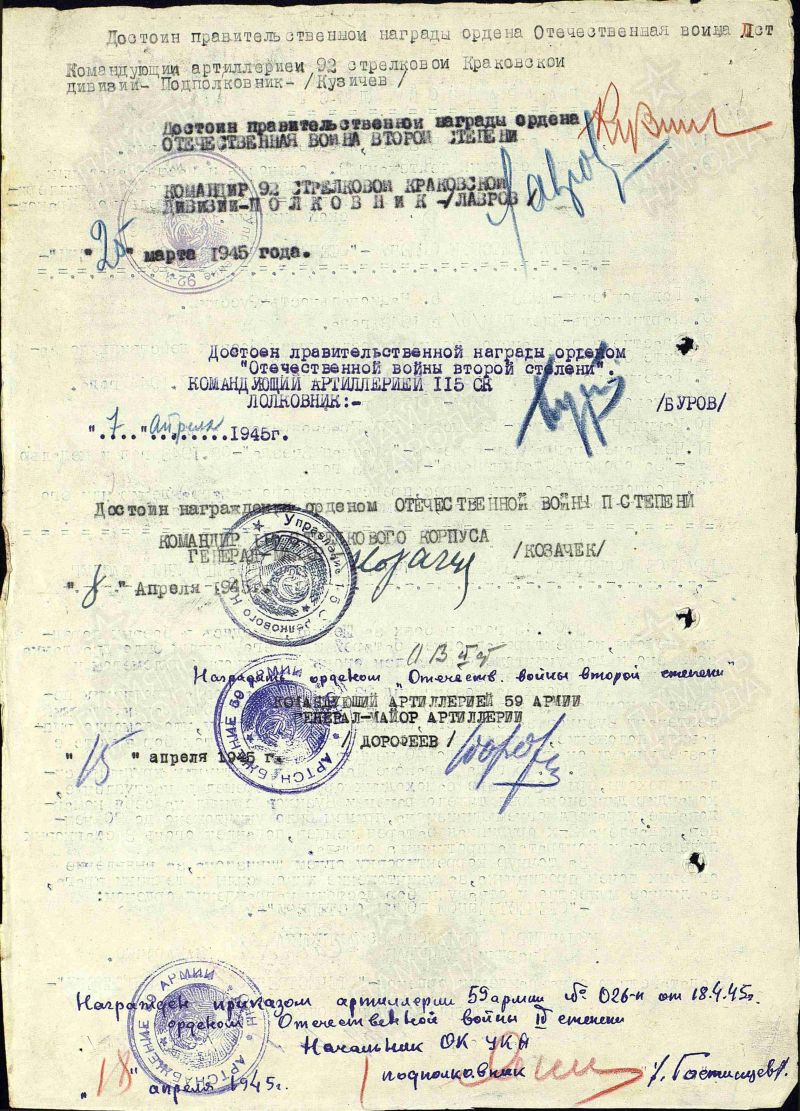 Достоин правительственнои награды ордена Отечественная воина Пст
Командующии артиллериеи 92 стрелковои Краковскои
дивизии- Подполковник- /Кузичев/
Достоин правительственнои награды ордена
ОТЕЧЕСТВЕННАЯ ВОИНА ВТОРОИ СТЕПЕНИ
КОМАНДИР 92 СТРЕЛКОВОИ КРАКОВСКОИ
ДИВИЗИИ-П О Л К О В Н И К -/ЛАВРОВ/
Лавров
"25" марта 1945 года.
Достоен правительственной награды орденом
"Отечественной войны второй степени".
КОМАНДУЮЩИЙ АРТИЛЛЕРИЕЙ II5 СК
ПОЛКОВНИК:- /БУРОВ/
"7" Апреля 1945г.
Достоин награждения орденом ОТЕЧЕСТВЕННОЙ ВОЙНЫ П-СТЕПЕНИ
КОМАНДИР КОВОГО КОРПУСА
ГЕНЕРАЛ- /КОЗАЧЕК/
"8" Апреля 1945г.
Управление
ОВ II ст
Наградить орденом „Отечеств. войны второй степени"
КОМАНДУЮЩИЙ АРТИЛЛЕРИЕЙ 59 АРМИИ
ГЕНЕРАЛ-МАЙОР АРТИЛЛЕРИИ
/ ДОРОФЕЕВ /
"15" апреля 1945 г.
АРТСНАБЖЕНИЕ 59 АРМИИ
Награжден приказом артиллерии 59 армии № 026-н от 18.4.45г.
орденом Отечественной войны II степени
Начальник ОК УКА
подполковник /. Гостищев/.
"18" апреля 1945г.
АРТСНАБЖЕНИЕ 59 АРМИИ